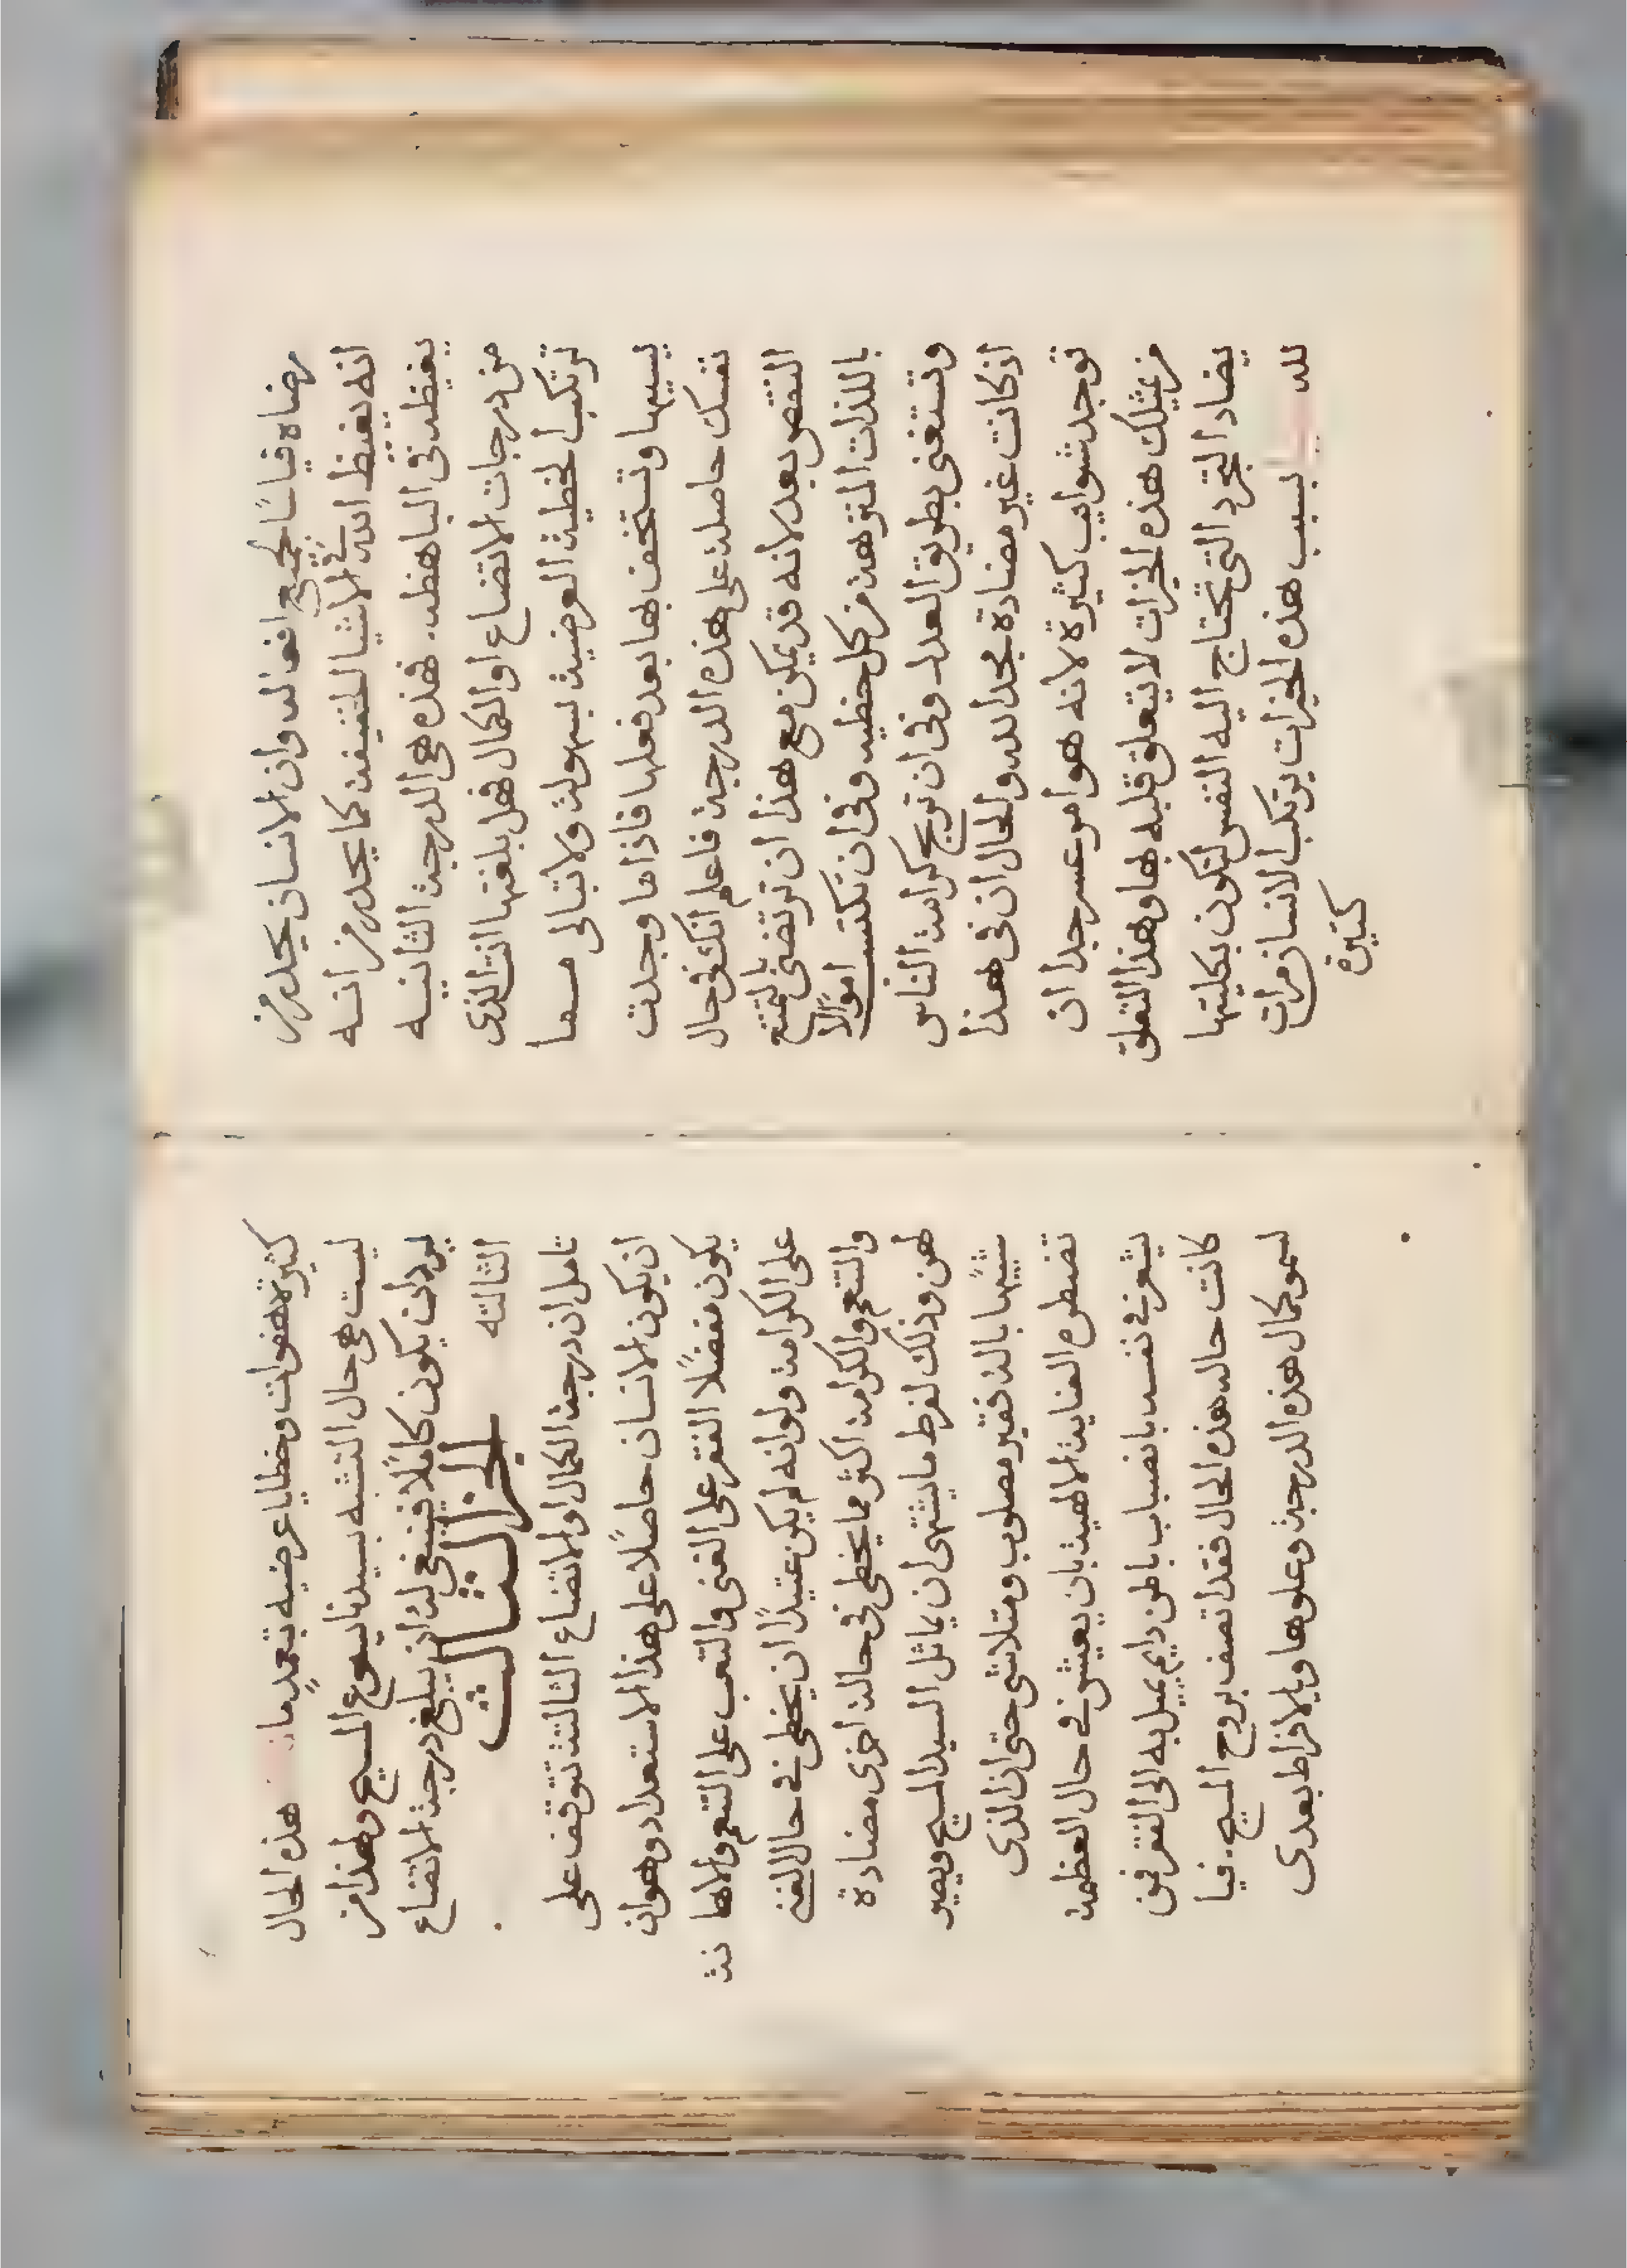 رضاه قياسًا لجميع افعاله وان الانسان يحدر من
انه يغيظ الله في الاشيا الخفيفه كما يحدر من انه
يغيظه في الباهظه. فهذه هي الدرجة الثانيه
من درجات الاتضاع او الكمال فهل بلغتها انت الذي
ترتكب الخطية العرضية بسهولة ولا تبالى مما
يسببها وتستخف بها بعد فعلها فاذا ما وجدت
نفسك حاصلة على هذه الدرجة فاعلم انك في حال
النقص بعد لانه قد يمكن مع هذا ان ترتضى بالتمتع
باللذات المتنزهة من كل خطيه وفى ان تكتسب اموالًا
وتستغنى بطريق العدل وفى ان تربح كرامة الناس
اذ كانت غير مضادة مجد الله والحال ان فى هذا
توجد شوايب كثيرة لانه هو امر عسر جدا ان
من يملك هذه الخيرات لا يتعلق قلبه بها وهذا التعلق
يضاد التجرد التى تحتاج اليه النفس لتكون بكليتها
لله بسبب هذه الخيرات يرتكب الانسان مرات
كثيرة
كثيرة هفوات وخطايا عرضيه بتعمدٍ ما هذه الحال
ليست هي حال التشبه بسيدنا يسوع المسيح ولهذا من
يود ان يكون كاملًا فينبغي له ان يبلغ درجة الاتضاع
الثالثه
الجز الثالث
تامل ان درجة الكمال او الاتضاع الثالثة تتوقف على
ان يكون الانسان حاصلًا على هذا الاستعداد وهو ان
يكون مفضلًا الفقر على الغنى والتعب على التنعم والاهانة
على الكرامة ولو انه لم يكن عتيدًا ان يخطى في حال الغنى
والتنعم والكرامة اكثر مما يخطى فى حالة اخرى مضادة
لهن وذلك لفرط ما يشتهى ان يماثل السيد المسيح ويصير
شبيهًا باله فقير مصلوب ومتلاشى حتى ان الذى
تضطره العناية الالهية بان يعيش في حال العظمة
يشعر في نفسه بانصباب باطن دايم يميل به الى الفقر فمن
كانت حاله هذه الحال فقد اتصف بروح المسيح. فيا
لسمو كمال هذه الدرجة وعلوها ويا لافراط بعدى